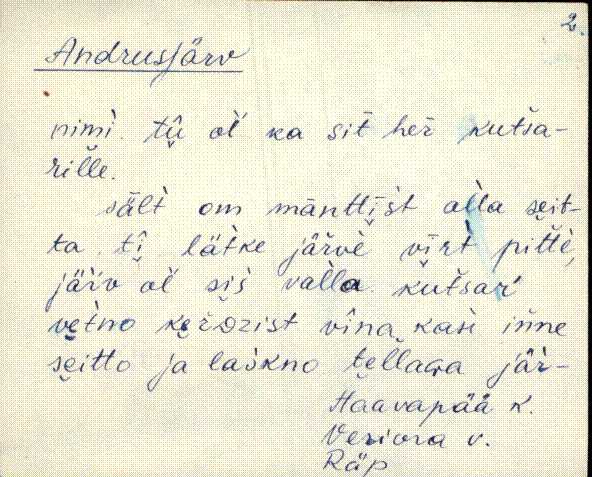 2.
Andrusjärv
nimi. tû̬ ol' ka sit̀ heŕ kut̀śa-
rìlle.
sält̀ om mänttist alla seit-
ta. tî̬ lät̀ke järvè vîrt pit̀t̀è,
järv ol' sis̀ valla. kut̀śar̀
vet̀no keŕDzist vîna kasi inne
seitto ja laskno tèllaGa jär-
Haavapää k.
Veriora v.
Räp